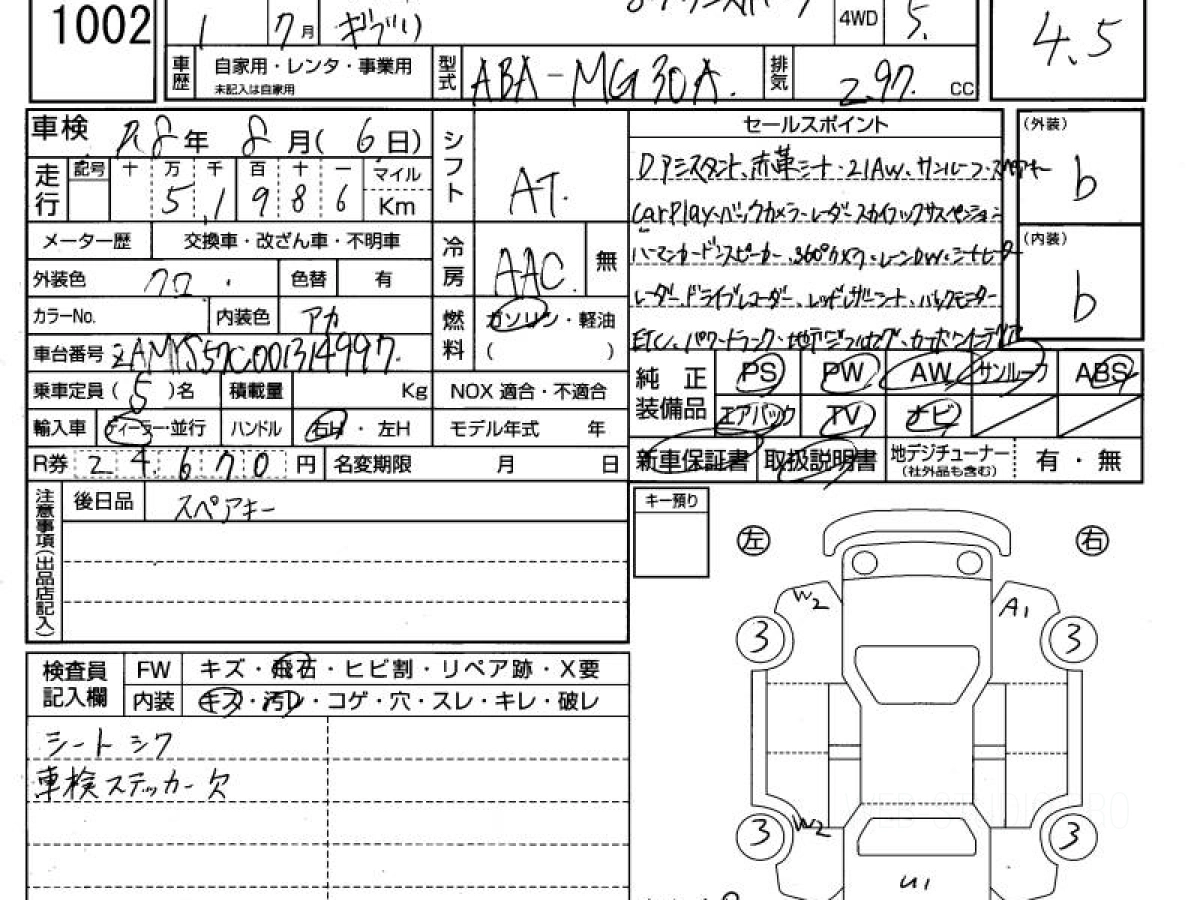 1002
1 7月 ギブリ
4WD 5.
4.5
車歴 自家用・レンタ・事業用
未記入は自家用
型式 ABA-MG30A.
排気 2.97. CC
車検 R8年 8月(6日)
走行 記号 十 万 千 百 十 一 マイル
5 1 9 8 6 Km
メーター歴 交換車・改ざん車・不明車
外装色 クロ. 色替 有
カラーNo. 内装色 アカ
車台番号 ZAMYS57C001314997.
乗車定員(5)名 積載量 Kg
輸入車 ディーラー・並行 ハンドル 右H・左H
R券 2 4 6 7 0 円 名変期限 月 日
シフト AT.
冷房 AAC. 無
燃料 ガソリン・軽油
( )
NOX 適合・不適合
モデル年式 年
セールスポイント
Dアシスタント、赤革シート・21AW、サンルーフ・スペアキー
CarPlay、バックカメラ・レーダー スカイフックサスペンション
ハーマンカードンスピーカー、360°カメラ・レーンDW、シートヒーター
レーダー、ドライブレコーダー、レッドレザーシート、バックモニター
ETC、パワートランク・地デジフルセグ・カーボンインテリア
(外装)
b
(内装)
b
純正装備品 PS PW AW サンルーフ ABS
エアバック TV ナビ
新車保証書 取扱説明書 地デジチューナー
(社外品も含む) 有・無
注意事項(出品店記入)
後日品 スペアキー
キー預り
左 右
W2 A1
3 3
3 W2 3
U1
検査員記入欄
FW キズ・飛石・ヒビ割・リペア跡・X要
内装 キズ・汚レ・コゲ・穴・スレ・キレ・破レ
シート シワ
車検ステッカー欠